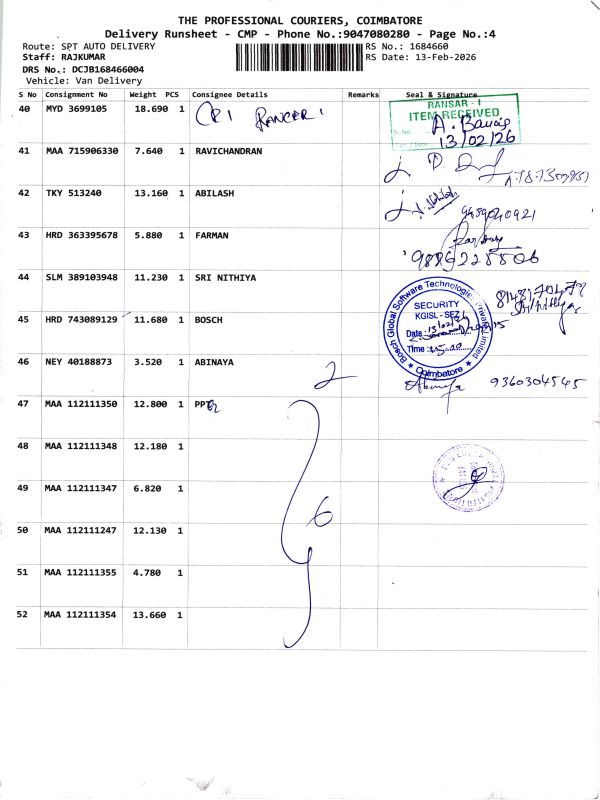 THE PROFESSIONAL COURIERS, COIMBATORE
Delivery Runsheet - CMP - Phone No.:9047080280 - Page No.:4
Route: SPT AUTO DELIVERY RS No.: 1684660
Staff: RAJKUMAR RS Date: 13-Feb-2026
DRS No.: DCJB168466004
Vehicle: Van Delivery
S No Consignment No Weight PCS Consignee Details Remarks Seal & Signature
40 MYD 3699105 18.690 1 CRI RANCER 1
RANSAR - I
ITEM RECEIVED
13/02/26
41 MAA 715906330 7.640 1 RAVICHANDRAN
42 TKY 513240 13.160 1 ABILASH
43 HRD 363395678 5.880 1 FARMAN
44 SLM 389103948 11.230 1 SRI NITHIYA
Bosch Global Software Technologies Private Limited
SECURITY
KGISL - SEZ
Date: 13/02/26
Time: 15.00
Coimbatore
45 HRD 743089129 11.680 1 BOSCH
46 NEY 40188873 3.520 1 ABINAYA 2 9360304545
47 MAA 112111350 12.800 1 PPT
48 MAA 112111348 12.180 1
49 MAA 112111347 6.820 1
6
50 MAA 112111247 12.130 1
51 MAA 112111355 4.780 1
52 MAA 112111354 13.660 1